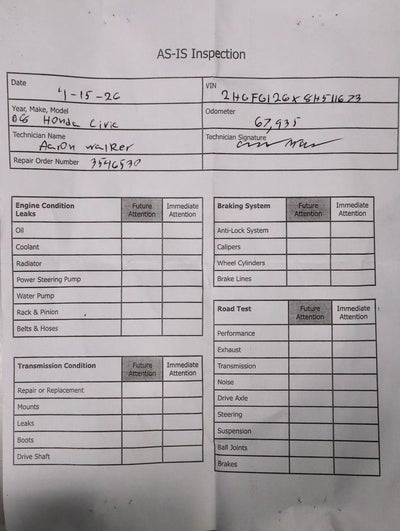 AS-IS Inspection
Date
VIN
4-15-26
2HGFG126X8H511673
Year, Make, Model
Odometer
08 Honda Civic
67,935
Technician Name
Technician Signature
Aaron Walker
Repair Order Number 3546530
Engine Condition Future Immediate
Leaks Attention Attention
Oil
Coolant
Radiator
Power Steering Pump
Water Pump
Rack & Pinion
Belts & Hoses
Transmission Condition Future Immediate
Attention Attention
Repair or Replacement
Mounts
Leaks
Boots
Drive Shaft
Braking System Future Immediate
Attention Attention
Anti-Lock System
Calipers
Wheel Cylinders
Brake Lines
Road Test Future Immediate
Attention Attention
Performance
Exhaust
Transmission
Noise
Drive Axle
Steering
Suspension
Ball Joints
Brakes